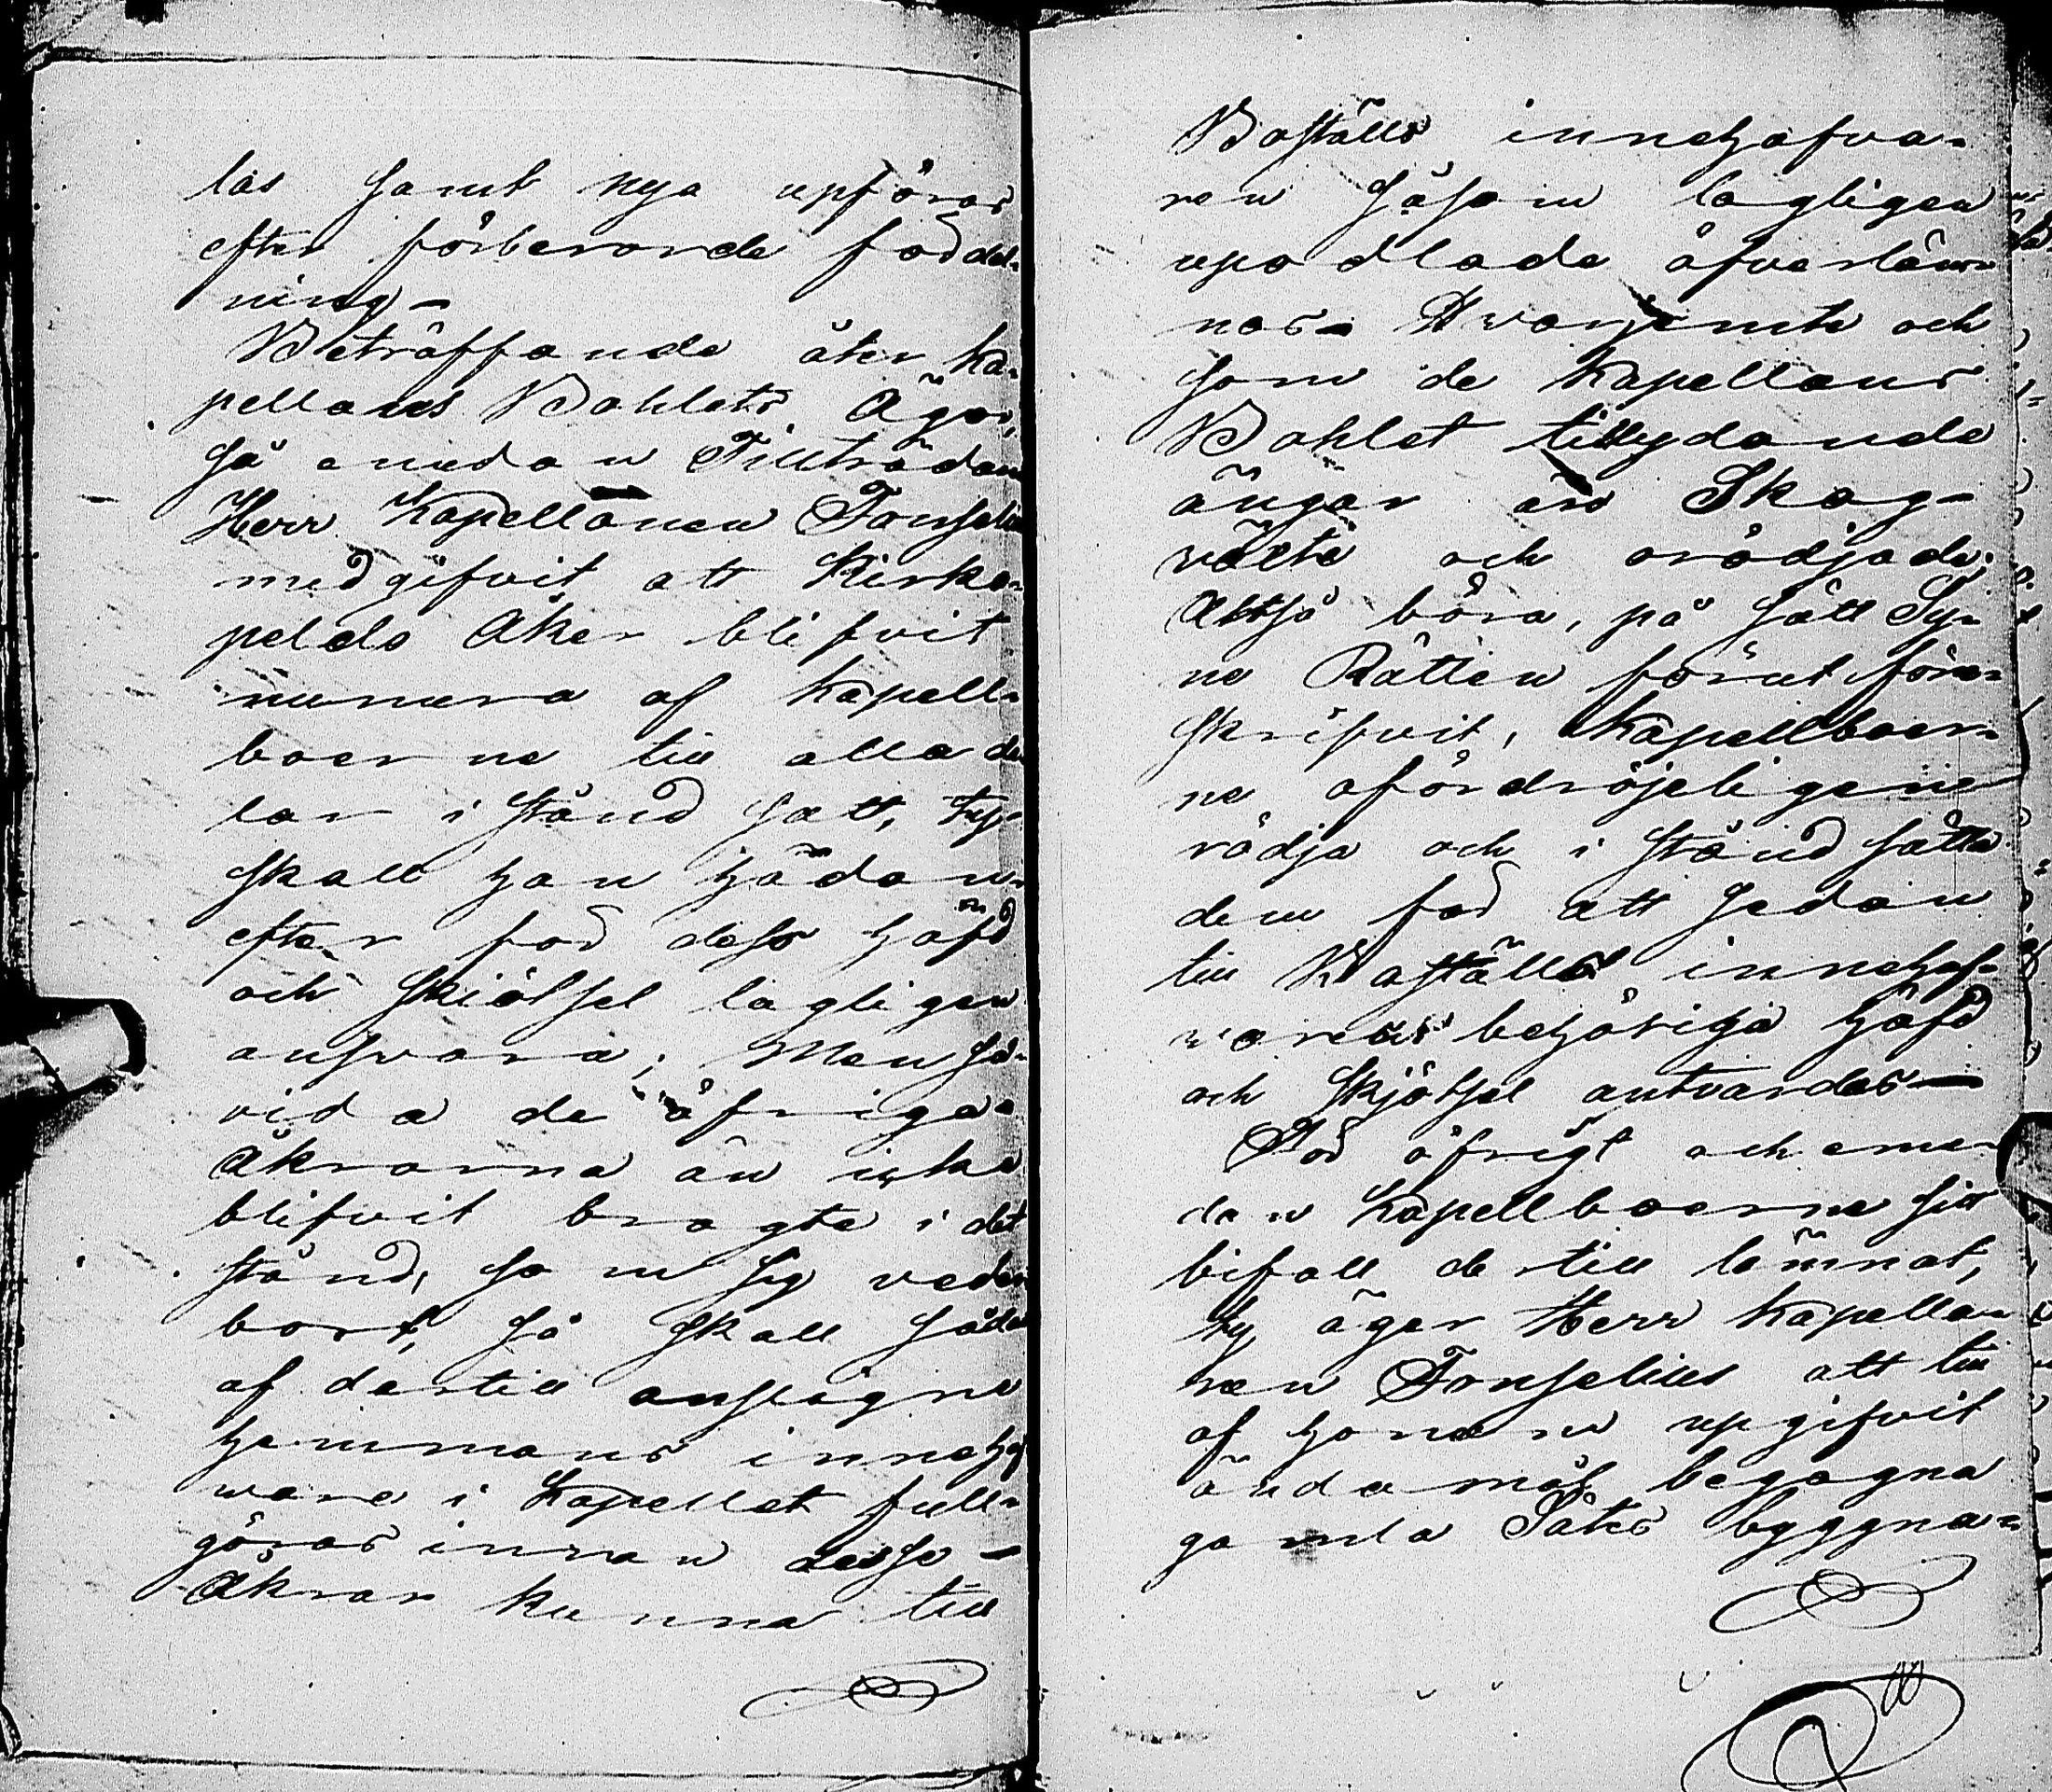 las samt nya upföras
efter förberorde fördel-
ning —
Beträffande åter Ka-
pellans Bohlets Ägor,
så emedan Tillträdan
Herr Kapellanen Fonseliu
medgifvit att Kirka-
pelds Åker blifvit
numera af Kapell-
boerne till alla de
lar i stånd satt, ty
skall han hädan-
efter för dess häfd
och skiötsel lagligen
ansvara; Men så-
vida de öfriga
Åkrarna än icke
blifvit bragte i det
stånd, som sig veder
bort, så skall såda
af dertill anslagne
hemmans innehaf
ware i Kapellet full-
göras innan desse —
Åkrar kunna till
Boställs innehafva-
ren såsom lagligen
upodlade öfverläm-
nas — Hvarjemte och
som de Kapellans
Bohlet tillydande
ängar äro Skog-
växte och orödjade,
Altså böra, på sätt Sy-
ne Rätten förut före-
skrifvit, Kapellboer-
ne ofördröjeligene
rödja och i stånd sätta
dem för att sedan
till Boställs innehaf-
warens behöriga häfd
och skjötsel antvardas —
För öfrigt och eme-
dan Kapellboerne sitt
bifall dertill lemnat,
ty äger Herr Kapella-
nen Fonselius att till
af honom upgifvit
ändamål begagna
gamla Säter byggna-